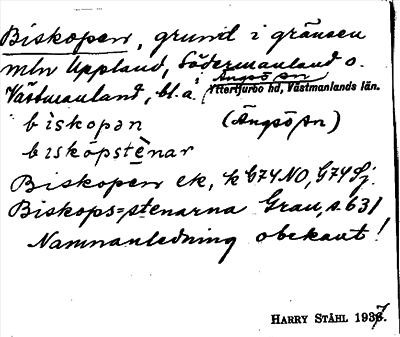 Biskopen, grund i gränsen
mln Uppland, Södermanland o.
Ängsö sn
Västmanland, bl. a. i Yttertjurbo hd, Västmanlands län.
biskopən (Ängsö sn)
biskopstenar
Biskopen ek, k 674 NO, 674 Sj.
Biskops=stenarna Grau, s. 631
Namnanledning obekant!
HARRY STÅHL 1937.